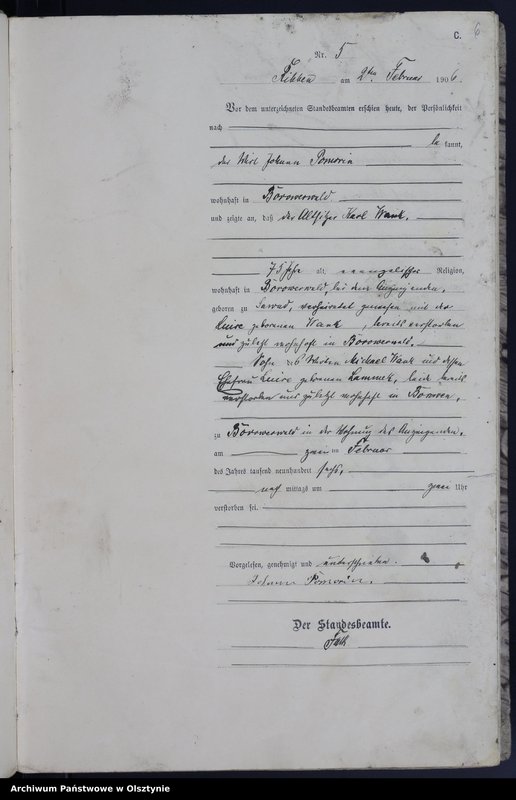 C. 6
Nr. 5
Ribben am 2ten Februar 1906.
Vor dem unterzeichneten Standesbeamten erschien heute, der Persönlichkeit
nach
be kannt,
der Wirt Johann Pomorin
wohnhaft in Borowerwald
und zeigte an, daß der Altsitzer Karl Wank,
75 Jahre alt, evangelischer Religion,
wohnhaft in Borowerwald, bei dem Anzeigenden,
geboren zu verheiratet gewesen mit der
Luise geborenen Wank, bereits verstorben
und zuletzt wohnhaft in Borowerwald.
Sohn des Michael Wank und dessen
Ehefrau Luise geborenen beide bereits
verstorben und zuletzt wohnhaft in
zu Borowerwald in der Wohnung des Anzeigenden,
am zwei ten Februar
des Jahres tausend neunhundert sechs,
nach mittags um zwei Uhr
verstorben sei.
Vorgelesen, genehmigt und unterschrieben.
Johann Pomorin.
Der Standesbeamte.
Archiwum Państwowe w Olsztynie